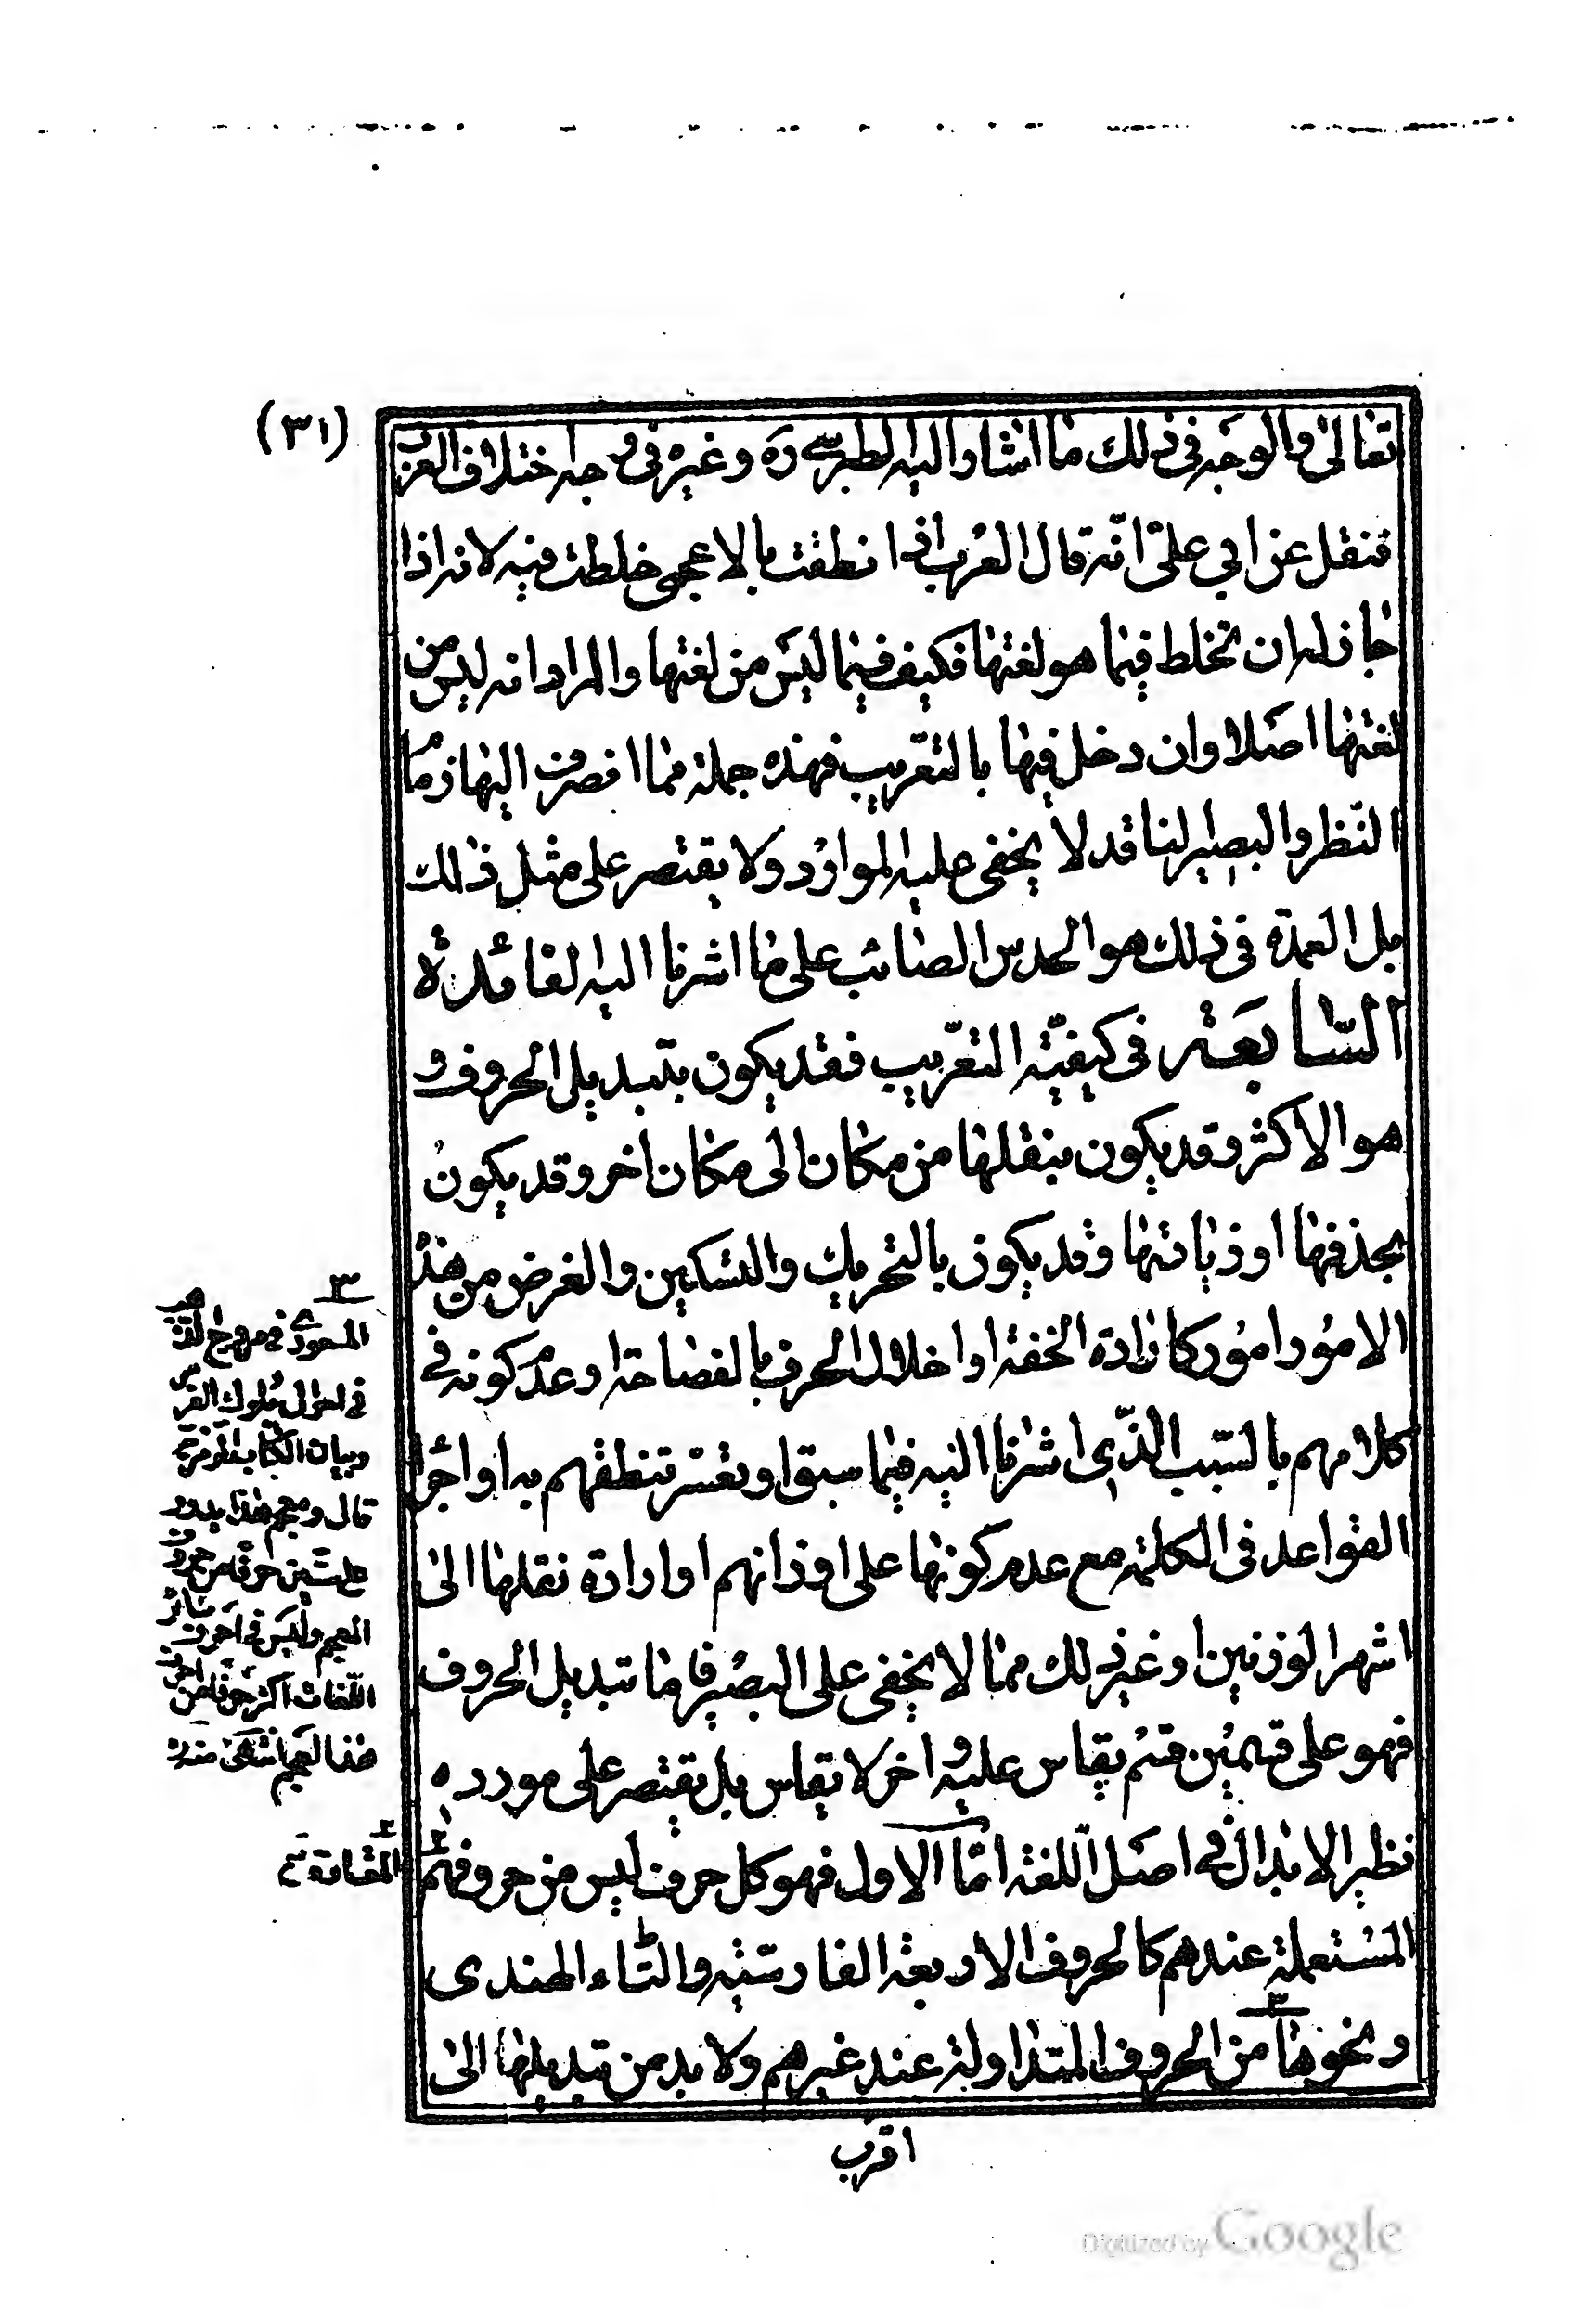 (٣١)
تعالى والوجه فى ذلك ما اشار اليه الطبرسے ره وغيره فى وجه اختلاف العرب
فنقل عن ابي على انّه قال العرب اذا نطقت بالاعجمى خلطت فيه لانه اذا
جاز له ان تخلط فيما هو لغتها فكيف فيما ليس من لغتها والمراد انه ليس من
لغتها اصلا وان دخل فيها بالتعريب فهذه جملة مما انصرف اليها زمام
النظر والبصير الناقد لا يخفى عليه الموارد ولا يقتصر على مثل ذلك
بل العمدة فى ذلك هو الحدس الصائب على ما اشرنا اليه الفائدة
السّابعة فى كيفيّة التعريب فقد يكون بتبديل الحروف و
هو الاكثر وقد يكون بنقلها من مكان الى مكان اخر وقد يكون
بحذفها او زيادتها وقد يكون بالتحريك والتسكين والغرض من هذه
الامور امور كارادة الخفة او اخلال الحرف بالفصاحة او عدم كونه فے
كلامهم بالسّبب الّذى اشرنا اليه فيما سبق او تعسّر تنطقهم به او اجراء
القواعد فى الكلمة مع عدم كونها على اوزانهم او ارادة نقلها الى
اشهر الوزنين او غير ذلك مما لا يخفى على البصير فاما تبديل الحروف
فهو على قسمين قسم يقاس عليه واخر لا يقاس بل يقتصر على مورده
نظير الابدال فى اصل اللغة امّا الاول فهو كل حرف ليس من حروفهم
المستعملة عندهم كالحروف الاربعة الفارسّية والتّاء الهندى
ونحوها من الحروف المتداولة عند غيرهم ولا بد من تبديلها الى
اقرب
٣
المسعودے فى مروج الذهب
فى احوال ملوك الفرس
وبيان الكتابة
قال ومعجم هذا يدور
على ستين حرفا من حروف
المعجم وليس فى سائر
اللغات اكثر حروفا من
هذا المعجم انتهى منه ره
٢